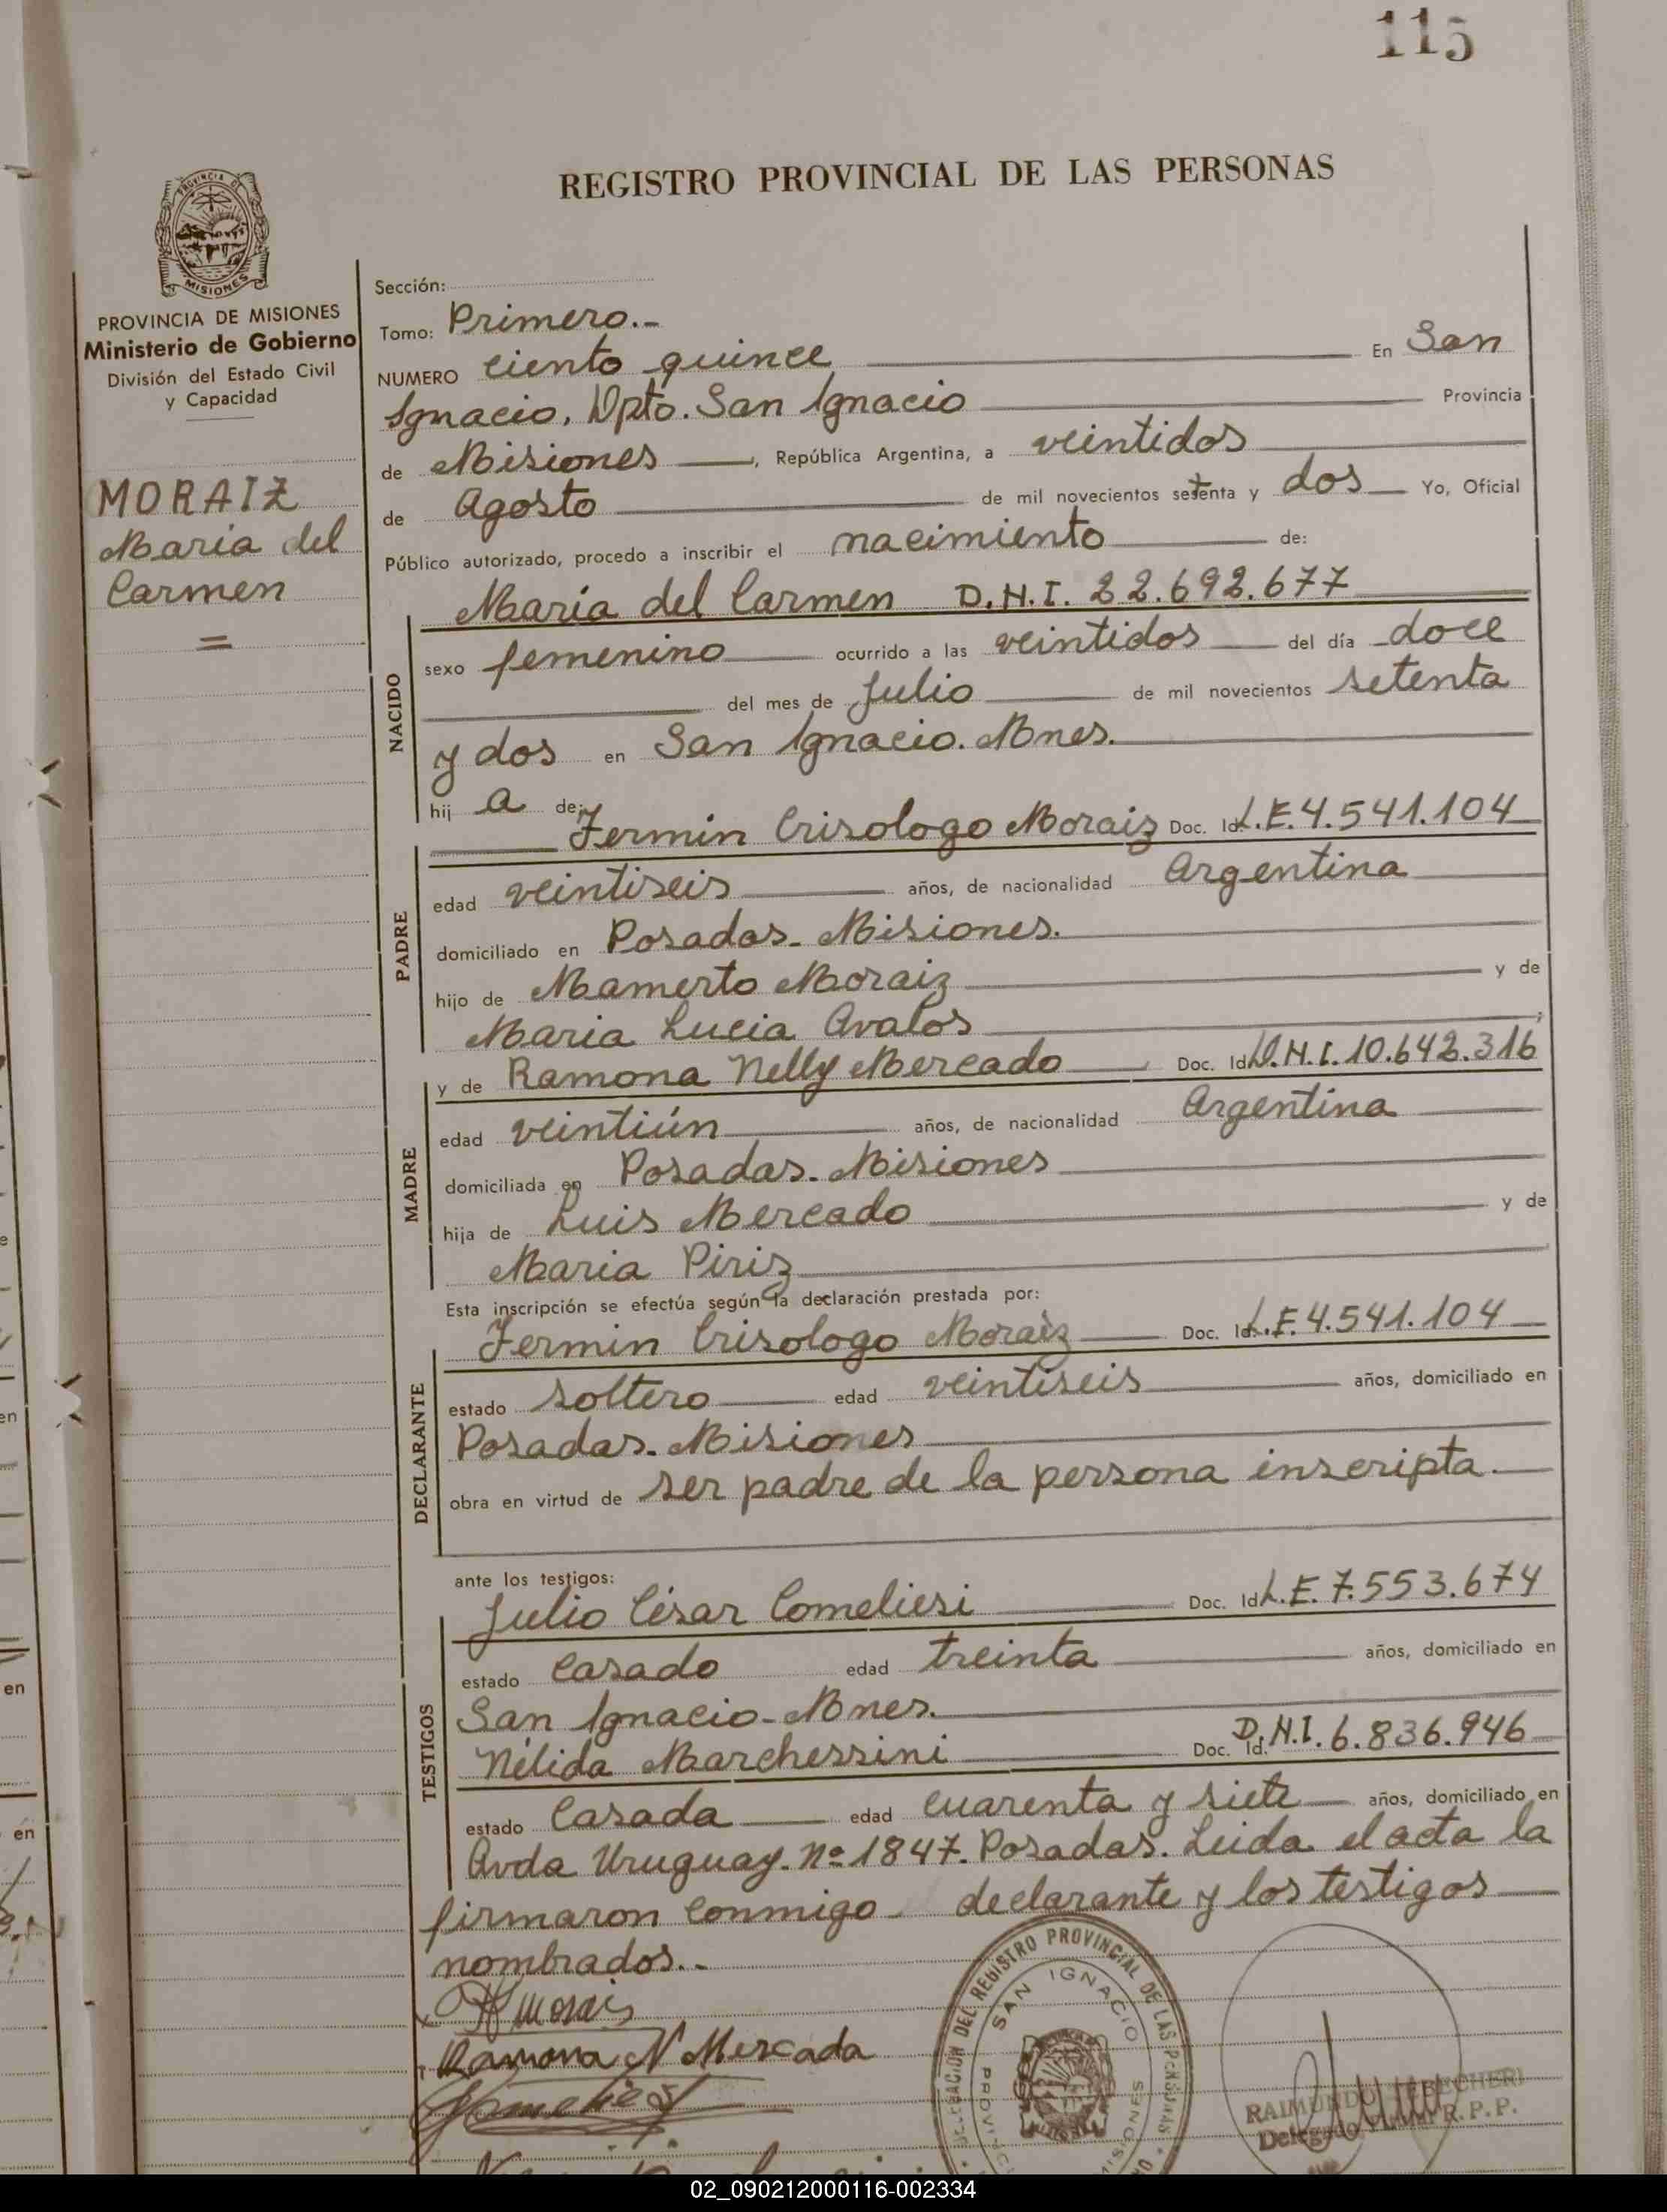 115
REGISTRO PROVINCIAL DE LAS PERSONAS
PROVINCIA DE MISIONES
Ministerio de Gobierno
División del Estado Civil
y Capacidad
MORAIZ
Maria del
Carmen
=
Sección:
Tomo: Primero.-
NUMERO ciento quince En San
Ignacio, Dpto. San Ignacio Provincia
de Misiones, República Argentina, a veintidos
de Agosto de mil novecientos setenta y dos Yo, Oficial
Público autorizado, procedo a inscribir el nacimiento de:
María del Carmen D.N.I. 22.692.677
NACIDO
sexo femenino ocurrido a las veintidos del día doce
del mes de Julio de mil novecientos setenta
y dos en San Ignacio. Mnes.
hij a de:
Fermin Crisologo Moraiz Doc. Id. L.E. 4.541.104
PADRE
edad veintiseis años, de nacionalidad Argentina
domiciliado en Posadas- Misiones.
hijo de Mamerto Moraiz y de
Maria Lucia Avalos
y de Ramona Nelly Mercado Doc. Id. D.N.I. 10.642.316
MADRE
edad veintiún años, de nacionalidad Argentina
domiciliada en Posadas- Misiones
hija de Luis Mercado y de
Maria Piriz
Esta inscripción se efectúa según la declaración prestada por:
Fermin Crisologo Moraiz Doc. Id. L.E. 4.541.104
DECLARANTE
estado soltero edad veintiseis años, domiciliado en
Posadas- Misiones
obra en virtud de ser padre de la persona inscripta.
ante los testigos:
Julio César Comeliesi Doc. Id. L.E. 7.553.674
TESTIGOS
estado Casado edad treinta años, domiciliado en
San Ignacio- Mnes.
Nélida Marchessini Doc. Id. D.N.I. 6.836.946
estado Casada edad cuarenta y siete años, domiciliado en
Avda Uruguay. Nº 1847. Posadas. Leida el acta la
firmaron conmigo declarante y los testigos
nombrados.-
Ramona N Mercado
DELEGACION DEL REGISTRO PROVINCIAL DE LAS PERSONAS
SAN IGNACIO
MISIONES
RAIMUNDO
R.P.P.
02_090212000116-002334